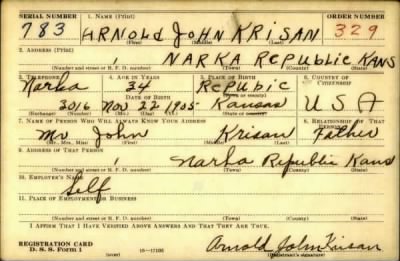 SERIAL NUMBER 1. NAME (Print) ORDER NUMBER
783 ARNOLD JOHN KRISAN 329
(First) (Middle) (Last)
2. ADDRESS (Print)
NARKA REPUBLIC KANS
(Number and street or R. F. D. number) (Town) (County) (State)
3. TELEPHONE 4. AGE IN YEARS 5. PLACE OF BIRTH 6. COUNTRY OF CITIZENSHIP
Narka 34 Republic
DATE OF BIRTH (Town or county)
3016 Nov 22 1905 Kansas U S A
(Exchange) (Number) (Mo.) (Day) (Yr.) (State or country)
7. NAME OF PERSON WHO WILL ALWAYS KNOW YOUR ADDRESS 8. RELATIONSHIP OF THAT PERSON
Mr John Krisan Father
(Mr., Mrs., Miss) (First) (Middle) (Last)
9. ADDRESS OF THAT PERSON
Narka Republic Kans
(Number and street or R. F. D. number) (Town) (County) (State)
10. EMPLOYER'S NAME
Self
11. PLACE OF EMPLOYMENT OR BUSINESS
(Number and street or R. F. D. number) (Town) (County) (State)
I AFFIRM THAT I HAVE VERIFIED ABOVE ANSWERS AND THAT THEY ARE TRUE.
REGISTRATION CARD
D. S. S. Form 1 (over) Arnold John Krisan
(Registrant's signature)